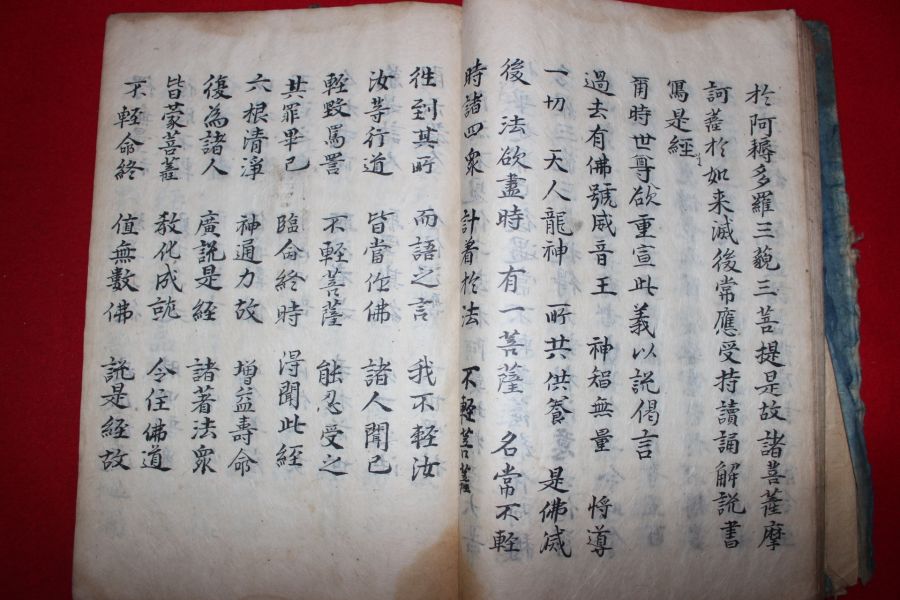 於阿耨多羅三藐三菩提是故諸菩薩摩
訶薩於如来滅後常應受持讀誦解説書
寫是經
爾時世尊欲重宣此義以説偈言
過去有佛號威音王 神智無量 将導
一切 天人龍神 所共供養 是佛滅
後法欲盡時有一菩薩 名常不輕
時諸四衆計着於法 不輕菩薩
徃到其所 而語之言 我不輕汝
汝等行道 皆當作佛 諸人聞已
輕毀罵詈 不輕菩薩 能忍受之
其罪畢已 臨命終時 得聞此經
六根清淨 神通力故 增益壽命
復為諸人 廣説是經 諸著法衆
皆蒙菩薩 教化成就 令住佛道
不輕命終 值無數佛 説是經故